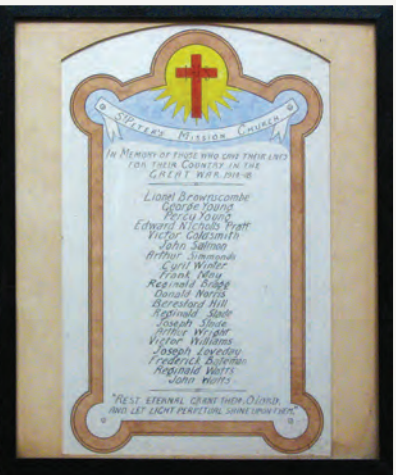 St Peter's Mission Church
In Memory of those who gave their lives
for their Country in the
Great War 1914-18
Lionel Brownscombe
George Young
Percy Young
Edward Nicholls Pratt
Victor Goldsmith
John Salmon
Arthur Simmonds
Cyril Winter
Frank May
Reginald Bragg
Donald Norris
Beresford Hill
Reginald Slade
Joseph Slade
Arthur Wright
Victor Williams
Joseph Loveday
Frederick Bateman
Reginald Watts
John Watts
"Rest eternal grant them, O Lord,
and let light perpetual shine upon them."